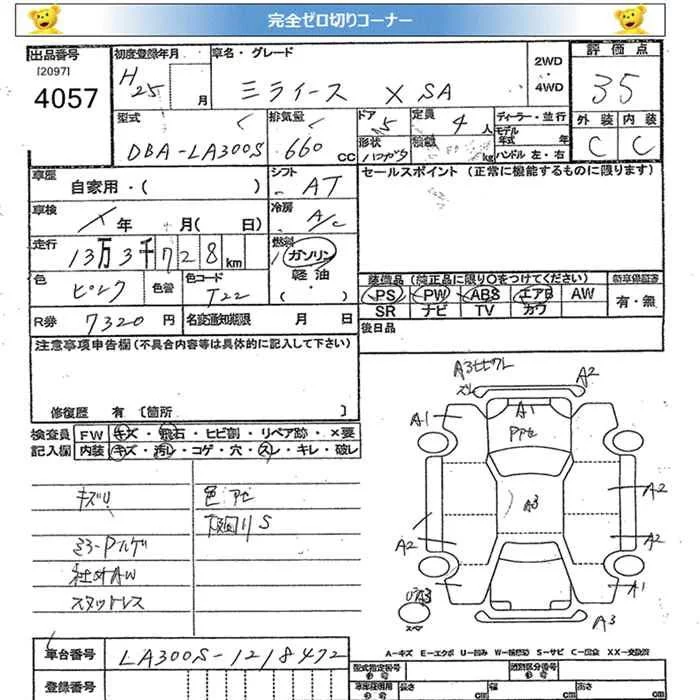 完全ゼロ切りコーナー
出品番号 初度登録年月 車名・グレード 2WD・4WD 評価点
[2097] H25 月 ミライース X SA 35
4057
型式 排気量 ドア 定員 ディーラー・並行 外装 内装
DBA-LA300S 660CC 5 4人 モデル年式 年 C C
形状 積載 kg ハンドル 左・右
車歴 自家用・( ) シフト AT セールスポイント (正常に機能するものに限ります)
車検 年 月( 日) 冷房 A/C
走行 13万3千728km 燃料 ガソリン 軽油 ( ・ )
色 ピンク 色替 色コード T22 装備品 (純正品に限り○をつけてください) 新車保証書
PS PW ABS エアB AW 有・無
SR ナビ TV カワ
R券 7320円 名変通知期限 月 日 後日品
注意事項申告欄 (不具合内容等は具体的に記入して下さい)
修復歴 有 [箇所 ]
検査員 FW キズ・飛石・ヒビ割・リペア跡・×要
記入欄 内装 キズ・汚れ・コゲ・穴・スレ・キレ・破レ
キズU 色アセ
下回りS
ミラーPハゲ
社外AW
スタッドレス
A3 A2
A1 A1
A3
A2
A2 A2
A1
A3
スペア
A3
A－キズ E－エクボ U－凹み W－補修跡 S－サビ C－腐食 XX－交換済
車台番号 LA300S-1218472
型式指定番号 類別区分番号
登録番号 長さ cm 幅 cm 高さ cm